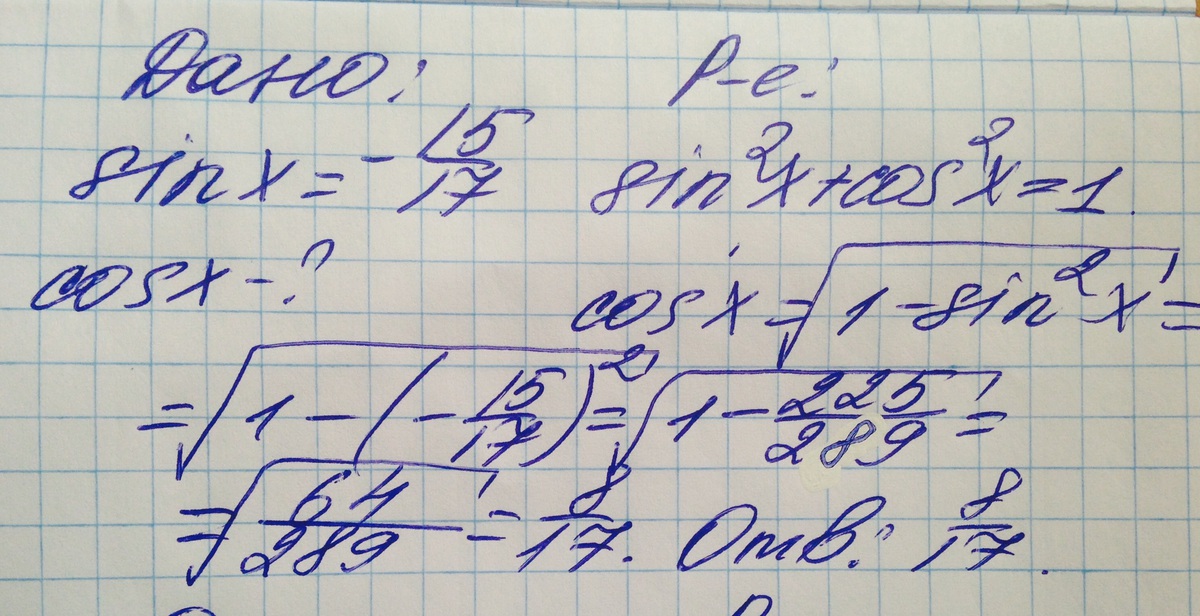 Дано: Р-е:
sin x = -15/17 sin²x + cos²x = 1.
cos x - ? cos x = √(1 - sin²x) =
= √(1 - (-15/17)²) = √(1 - 225/289) =
= √(64/289) = 8/17. Отв: 8/17.